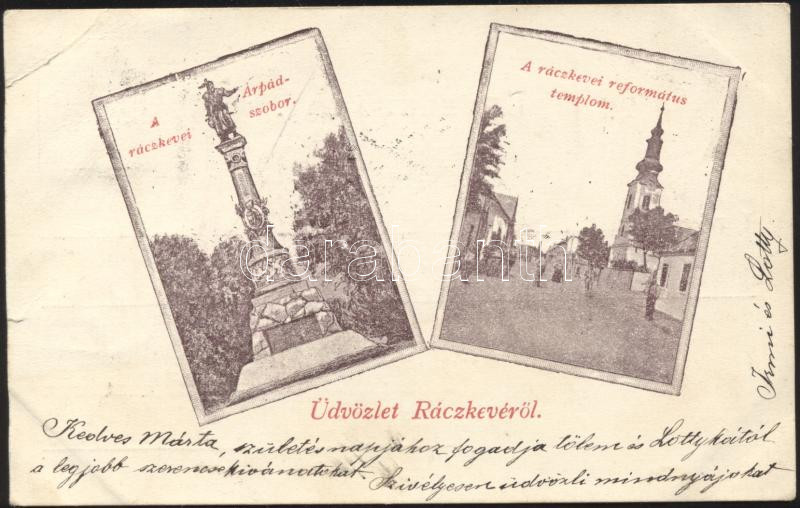 A
ráczkevei
Árpád-
szobor.
A ráczkevei református
templom.
darabanth.com
Üdvözlet Ráczkevéről.
Kedves Márta, születés napjához fogadja tőlem és Lottykától
a legjobb szerencsekivánatokat. Szivélyesen üdvözli mindnyájokat
Irmi és Lotty.